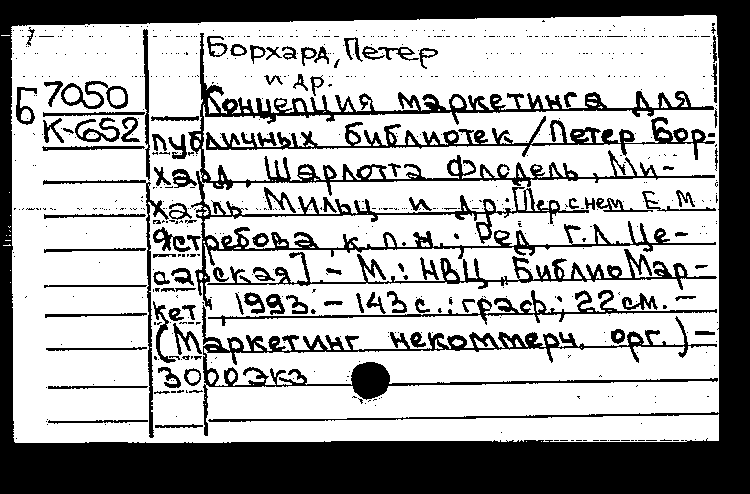 Борхард, Петер
и др.
Б 7050
К-652
Концепция маркетинга для
публичных библиотек / Петер Бор-
хард, Шарлотта Флодель, Ми-
хаэль Мильц и др.; Пер. с нем. Е. М.
Ястребова, к. п. н.; Ред. Г. Л. Це-
сарская]. - М.: НВЦ „БиблиоМар-
кет", 1993. - 143 с.: граф.; 22 см. -
(Маркетинг некоммерч. орг.) -
3000 экз